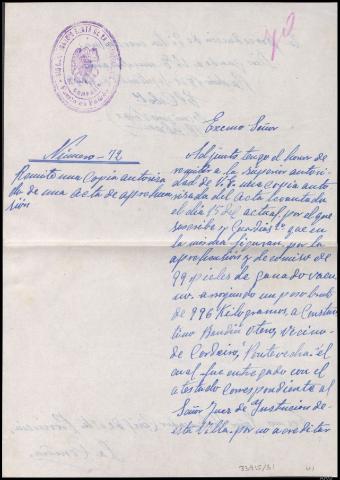 Excmo Señor
Número-72
Remite una copia autoriza
do de una acta de aprehen
sión
Adjunto tengo el honor de
remitir a la superior autori
dad de V.E. una copia auto
rizada del acta levantada
el día 15 del actual por el que
suscribe y Guardias que en
la misma figuran, por la
aprehensión y decomiso de
99 pieles de ganado vacu
no, arrojando un peso bruto
de 996 Kilogramos, a Constan
tino Otero, vecino
de Cordeiro, Pontevedra; el
cual fue entregado con el
atestado correspondiente al
Señor Juez de Instrucion de
esta Villa, por no acreditar